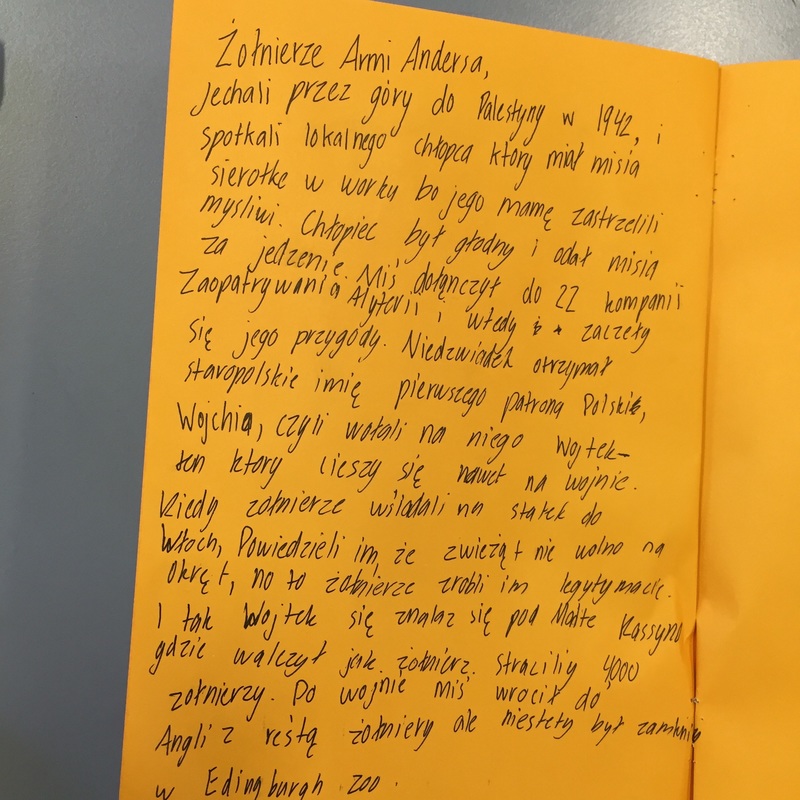 Żołnierze Armi Andersa,
Jechali przez góry do Palestyny w 1942, i
spotkali lokalnego chłopca który miał misia
sierotke w worku bo jego mamę zastrzelili
mysliwi. Chłopiec był głodny i odał misia
za jedzenie. Miś dołączył do 22 kompanii
Zaopatrywania Atylerii i wtedy zaczeły
się jego przygody. Niedzwiadek otrzymał
staropolskie imię pierwszego patrona Polski,
Wojchia, czyli wołali na niego Wojtek-
ten który cieszy się nawet na wojnie.
Kiedy żołnierze wsiadali na statek do
Włoch, Powiedzieli im, że zwieżąt nie wolno na
Okręt, no to żołnierze zrobli im legytymacje.
I tak Wojtek się znalaz się pod Monte Kassyno
gdzie walczył jak żołnierz. Straciliy 4000
zołnierzy. Po wojnie miś wrocił do
Angli z restą żołniery ale niestety był zamknięty
w Edingburgh zoo.